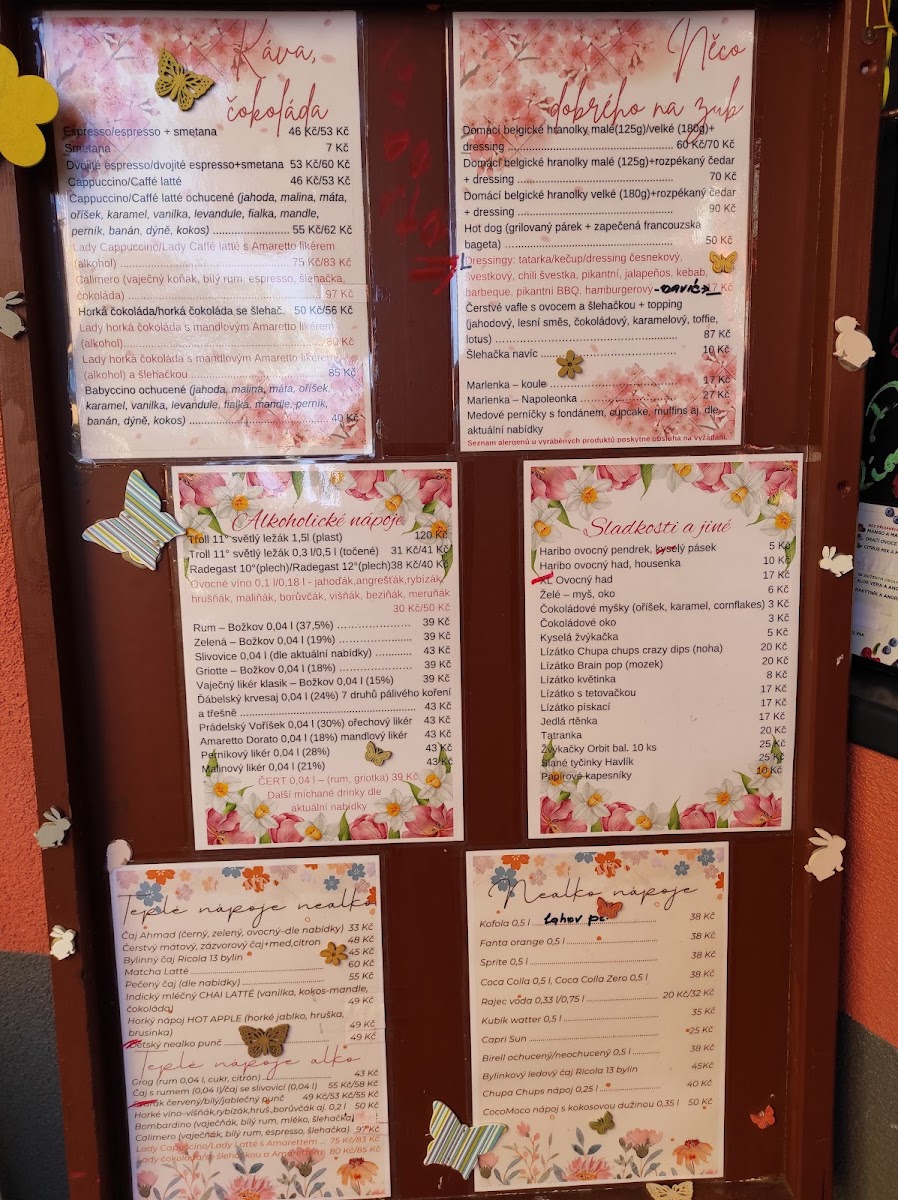 Káva,
čokoláda
Espresso/espresso + smetana 46 Kč/53 Kč
Smetana 7 Kč
Dvojité espresso/dvojité espresso+smetana 53 Kč/60 Kč
Cappuccino/Caffé latté 46 Kč/53 Kč
Cappuccino/Caffé latté ochucené (jahoda, malina, máta,
oříšek, karamel, vanilka, levandule, fialka, mandle,
perník, banán, dýně, kokos) 55 Kč/62 Kč
Lady Cappuccino/Lady Caffé latté s Amaretto likérem
(alkohol) 75 Kč/83 Kč
Calimero (vaječný koňak, bílý rum, espresso, šlehačka,
čokoláda) 97 Kč
Horká čokoláda/horká čokoláda se šlehač. 50 Kč/56 Kč
Lady horká čokoláda s mandlovým Amaretto likérem
(alkohol) 80 Kč
Lady horká čokoláda s mandlovým Amaretto likérem
(alkohol) a šlehačkou 85 Kč
Babyccino ochucené (jahoda, malina, máta, oříšek,
karamel, vanilka, levandule, fialka, mandle, perník,
banán, dýně, kokos) 40 Kč
Něco
dobrého na zub
Domácí belgické hranolky malé(125g)/velké (180g)+
dressing 60 Kč/70 Kč
Domácí belgické hranolky malé (125g)+rozpékaný čedar
+ dressing 70 Kč
Domácí belgické hranolky velké (180g)+rozpékaný čedar
+ dressing 90 Kč
Hot dog (grilovaný párek + zapečená francouzska
bageta) 50 Kč
Dressingy: tatarka/kečup/dressing česnekový,
švestkový, chili švestka, pikantní, jalapeňos, kebab,
barbeque, pikantní BBQ, hamburgerový -NAVÍC 17 Kč
Čerstvé vafle s ovocem a šlehačkou + topping
(jahodový, lesní směs, čokoládový, karamelový, toffie,
lotus) 87 Kč
Šlehačka navíc 10 Kč
Marlenka – koule 17 Kč
Marlenka – Napoleonka 27 Kč
Medové perníčky s fondánem, cupcake, muffins aj. dle
aktuální nabídky
Seznam alergenů u vyráběných produktů poskytne obsluha na vyžádání.
Alkoholické nápoje
Troll 11° světlý ležák 1,5l (plast) 120 Kč
Troll 11° světlý ležák 0,3 l/0,5 l (točené) 31 Kč/41 Kč
Radegast 10°(plech)/Radegast 12°(plech)38 Kč/40 Kč
Ovocné víno 0,1 l/0,18 l - jahoďák,angrešťák,rybízák,
hrušňák, maliňák, borůvčák, višňák, beziňák, meruňák
30 Kč/50 Kč
Rum – Božkov 0,04 l (37,5%) 39 Kč
Zelená – Božkov 0,04 l (19%) 39 Kč
Slivovice 0,04 l (dle aktuální nabídky) 43 Kč
Griotte – Božkov 0,04 l (18%) 39 Kč
Vaječný likér klasik – Božkov 0,04 l (15%) 39 Kč
Ďábelský krvesaj 0,04 l (24%) 7 druhů pálivého koření
a třešně 43 Kč
Prádelský Voříšek 0,04 l (30%) ořechový likér 43 Kč
Amaretto Dorato 0,04 l (18%) mandlový likér 43 Kč
Perníkový likér 0,04 l (28%) 43 Kč
Malinový likér 0,04 l (21%) 43 Kč
ČERT 0,04 l – (rum, griotka) 39 Kč
Další míchané drinky dle
aktuální nabídky
Sladkosti a jiné
Haribo ovocný pendrek, kyselý pásek 5 Kč
Haribo ovocný had, housenka 10 Kč
XL Ovocný had 17 Kč
Želé – myš, oko 6 Kč
Čokoládové myšky (oříšek, karamel, cornflakes) 3 Kč
Čokoládové oko 3 Kč
Kyselá žvýkačka 5 Kč
Lízátko Chupa chups crazy dips (noha) 20 Kč
Lízátko Brain pop (mozek) 20 Kč
Lízátko květinka 8 Kč
Lízátko s tetovačkou 17 Kč
Lízátko pískací 17 Kč
Jedlá rtěnka 17 Kč
Tatranka 20 Kč
Žvýkačky Orbit bal. 10 ks 25 Kč
Slané tyčinky Havlík 25 Kč
Papírové kapesníky 10 Kč
Teplé nápoje nealko
Čaj Ahmad (černý, zelený, ovocný-dle nabídky) 33 Kč
Čerstvý mátový, zázvorový čaj+med,citron 48 Kč
Bylinný čaj Ricola 13 bylin 45 Kč
Matcha Latté 60 Kč
Pečený čaj (dle nabídky) 55 Kč
Indický mléčný CHAI LATTÉ (vanilka, kokos-mandle,
čokoláda) 49 Kč
Horký nápoj HOT APPLE (horké jablko, hruška,
brusinka) 49 Kč
Dětský nealko punč 49 Kč
Teplé nápoje alko
Grog (rum 0,04 l, cukr, citrón) 43 Kč
Čaj s rumem (0,04 l)/čaj se slivovicí (0,04 l) 55 Kč/58 Kč
červený/bílý/jablečný punč 49 Kč/53 Kč/55 Kč
Horké víno–višňák,rybízák,hruš,borůvčák aj. 0,2 l 50 Kč
Bombardino (vaječňák, bílý rum, mléko, šlehačka)
Calimero (vaječňák, bílý rum, espresso, šlehačka) 97 Kč
Lady Cappuccino/Lady Latté s Amarettem 75 Kč/83 Kč
Lady čokoláda/se šlehačkou a Amarettem 80 Kč/85 Kč
Nealko nápoje
Kofola 0,5 l Lahov 38 Kč
Fanta orange 0,5 l 38 Kč
Sprite 0,5 l 38 Kč
Coca Colla 0,5 l, Coca Colla Zero 0,5 l 38 Kč
Rajec voda 0,33 l/0,75 l 20 Kč/32 Kč
Kubík watter 0,5 l 35 Kč
Capri Sun 25 Kč
Birell ochucený/neochucený 0,5 l 38 Kč
Bylinkový ledový čaj Ricola 13 bylin 45Kč
Chupa Chups nápoj 0,25 l 40 Kč
CocoMoco nápoj s kokosovou dužinou 0,35 l 50 Kč